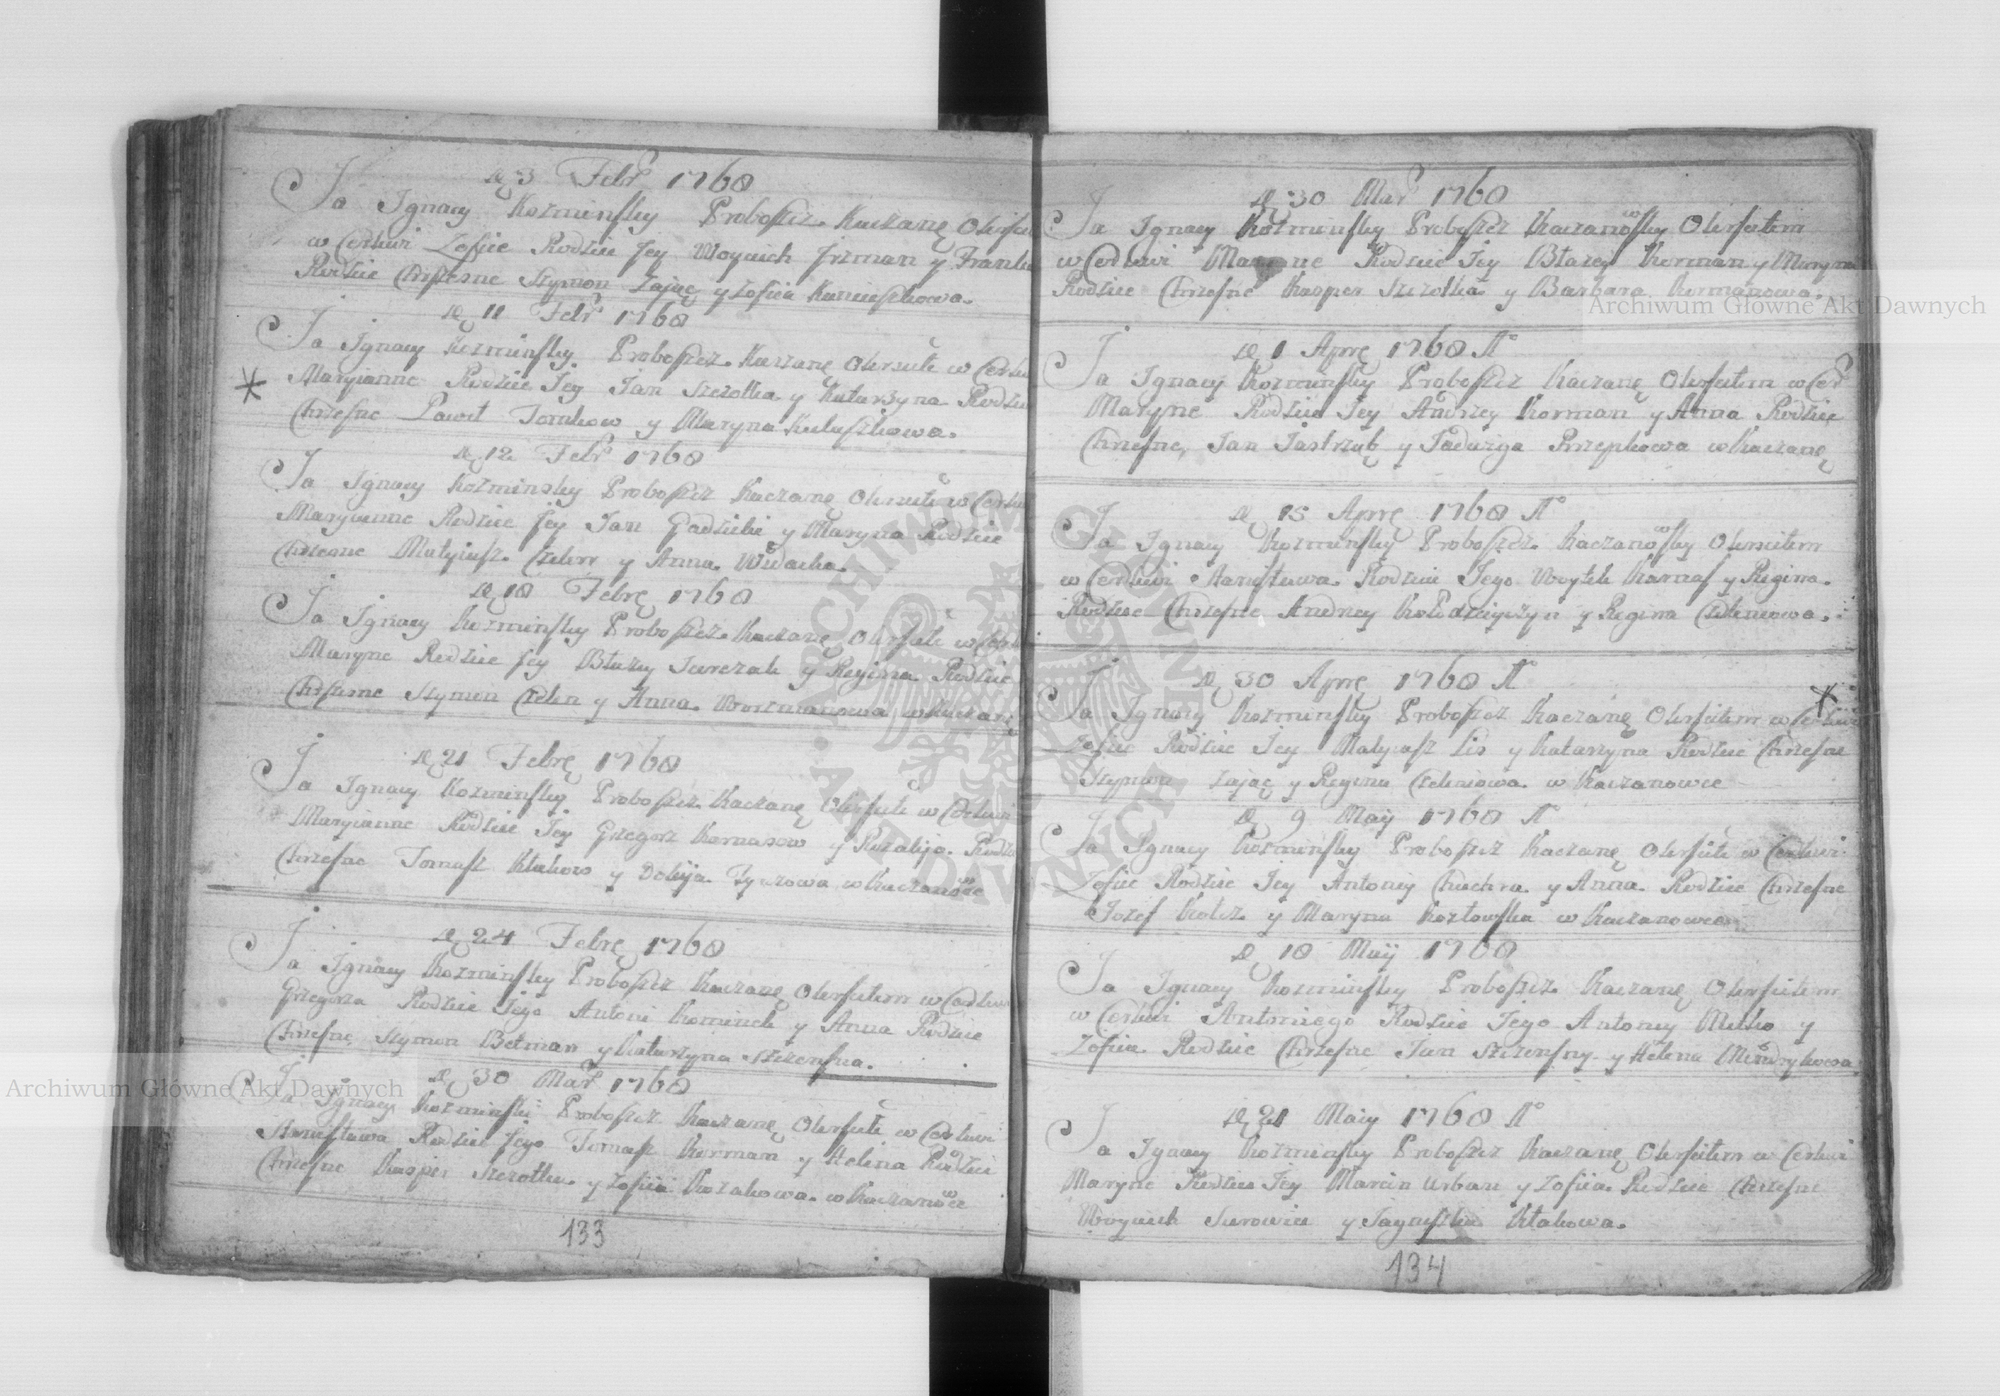 D 3 Febr 1768
Ja Ignacy Kozminsky Proboszcz Kaczanę
w Cerkwi Zofiie Rodzice Jey Woyciech Jrzman y
Rodzice Chrzesne Szymon Zając y Zofiia
D 11 Febr 1768
Ja Ignacy Kozminsky Proboszcz Kaczanę Okrzciłe w
Maryianne Rodzice Jey Jan Szczotka y Katarzyna
Chrzesne Paweł Tomkow y Maryna
D 12 Febr 1768
Ja Ignacy Kozminsky Proboszcz Kaczanę Okrzciłe w
Maryianne Rodzice Jey Jan Gadzicki y Maryna Rodzice
Chrzesne Matyiasz y Anna
D 18 Febrę 1768
Ja Ignacy Kozminsky Proboszcz Kaczanę Okrzciłe w
Maryne Rodzice Jey Błazey Jurczak y Regina Rodzice
Chrzesne Szymon Czelen y Anna
D 21 Febrę 1768
Ja Ignacy Kozminsky Proboszcz Kaczanę Okrzciłe w Cerkwi
Maryianne Rodzice Jey Grzegorz Karnasow y Rozalija
Chrzesne Tomasz Kłakow y w Kaczanowce
D 24 Febrę 1768
Ja Ignacy Kozminsky Proboszcz Kaczanę Okrzciłem w
Grzegorza Rodzice Jego Antoni Kominek y Anna Rodzice
Chrzesne Szymon Betman y Katarzyna Szczensna.
D 30 Mar 1768
Ja Ignacy Kozminski Proboszcz Kaczanę Okrzciłe w Cerkwi
Stanisława Rodzice Jego Tomasz Korman y Helina Rodzice
Chrzesne Kasper Szczotka y Zofiia Kozakowa w Kaczanowce
133
D 30 Mar 1768
Ja Ignacy Kozminsky Proboszcz Kaczanowsky Okrzciłem
w Cerkwi Maryne Rodzice Jey Błazey Korman y Maryna
Rodzice Chrzesne Kasper Szczotka y Barbara Kormanowa.
D 1 Aprę 1768 A°
Ja Ignacy Kozminsky Proboszcz Kaczanę Okrzciłem w Cer
Maryne Rodzice Jey Andrzey Korman y Anna Rodzice
Chrzesne, Jan Jastrząb y Jadwiga Przepkowa w Kaczanę
D 15 Aprę 1768 A°
Ja Ignacy Kozminsky Proboszcz Kaczanowsky Okrzciłem
w Cerkwi Stanisława Rodzice Jego Woytek Karnas y Regina
Rodzice Chrzesne Andrzey y Regina Czeleniowa.
D 30 Aprę 1768 A°
Ja Ignacy Kozminsky Proboszcz Kaczanę Okrzciłem w Cerkwi
Zofiie Rodzice Jey Matyiasz Lis y Katarzyna Rodzice Chrzesne
Szymon Zając y Regina Czeleniowa w Kaczanowce
D 9 Maij 1768 A°
Ja Ignacy Kozminsky Proboszcz Kaczanę Okrzciłe w Cerkwi
Zofiie Rodzice Jey Antoniy Chuchra y Anna Rodzice Chrzesne
Jozef y Maryna Kozłowska w Kaczanowce
D 18 Maij 1768
Ja Ignacy Kozminsky Proboszcz Kaczanę Okrzciłem
w Cerkwi Antoniego Rodzice Jego Antoniy Mitko y
Zofiia Rodzice Chrzesne Jan Szczensny y Helena
D 21 Maiy 1768 A°
Ja Ignacy Kozminsky Proboszcz Kaczanę Okrzciłem w Cerkwi
Maryne Rodzice Jey Marcin Urban y Zofiia Rodzice Chrzesne
Woyciech Surowiec y Jagnyszka Kłakowa.
134
Archiwum Główne Akt Dawnych
Archiwum Główne Akt Dawnych
ARCHIWUM GŁÓWNE AKT DAWNYCH